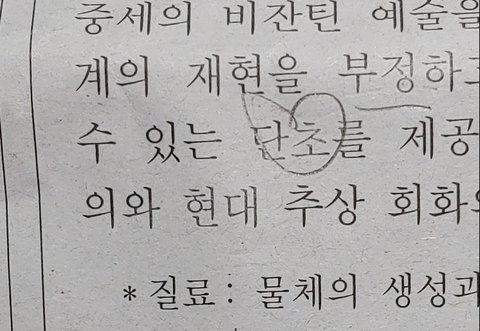 중세의 비잔틴 예술을
계의 재현을 부정하고
수 있는 단초를 제공
의와 현대 추상 회화의
* 질료: 물체의 생성과